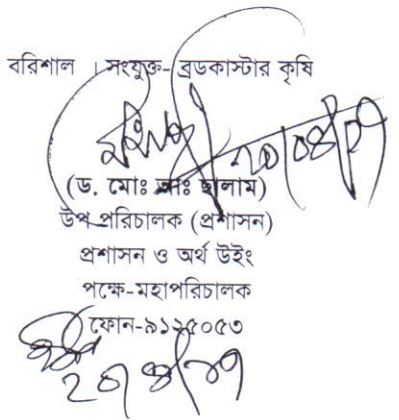 বরিশাল । সংযুক্ত- ব্রডকাস্টার কৃষি
(ড. মোঃ আঃ ছালাম)
উপ পরিচালক (প্রশাসন)
প্রশাসন ও অর্থ উইং
পক্ষে-মহাপরিচালক
ফোন-৯১২৫০৫৩